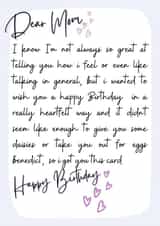 Dear Mom,
I know I'm not always so great at
telling you how i feel or even like
talking in general, but i wanted to
wish you a happy Birthday in a
really heartfelt way and it didn't
seem like enough to give you some
daisies or take you out for eggs
benedict, so i got you this card.
Happy Birthday